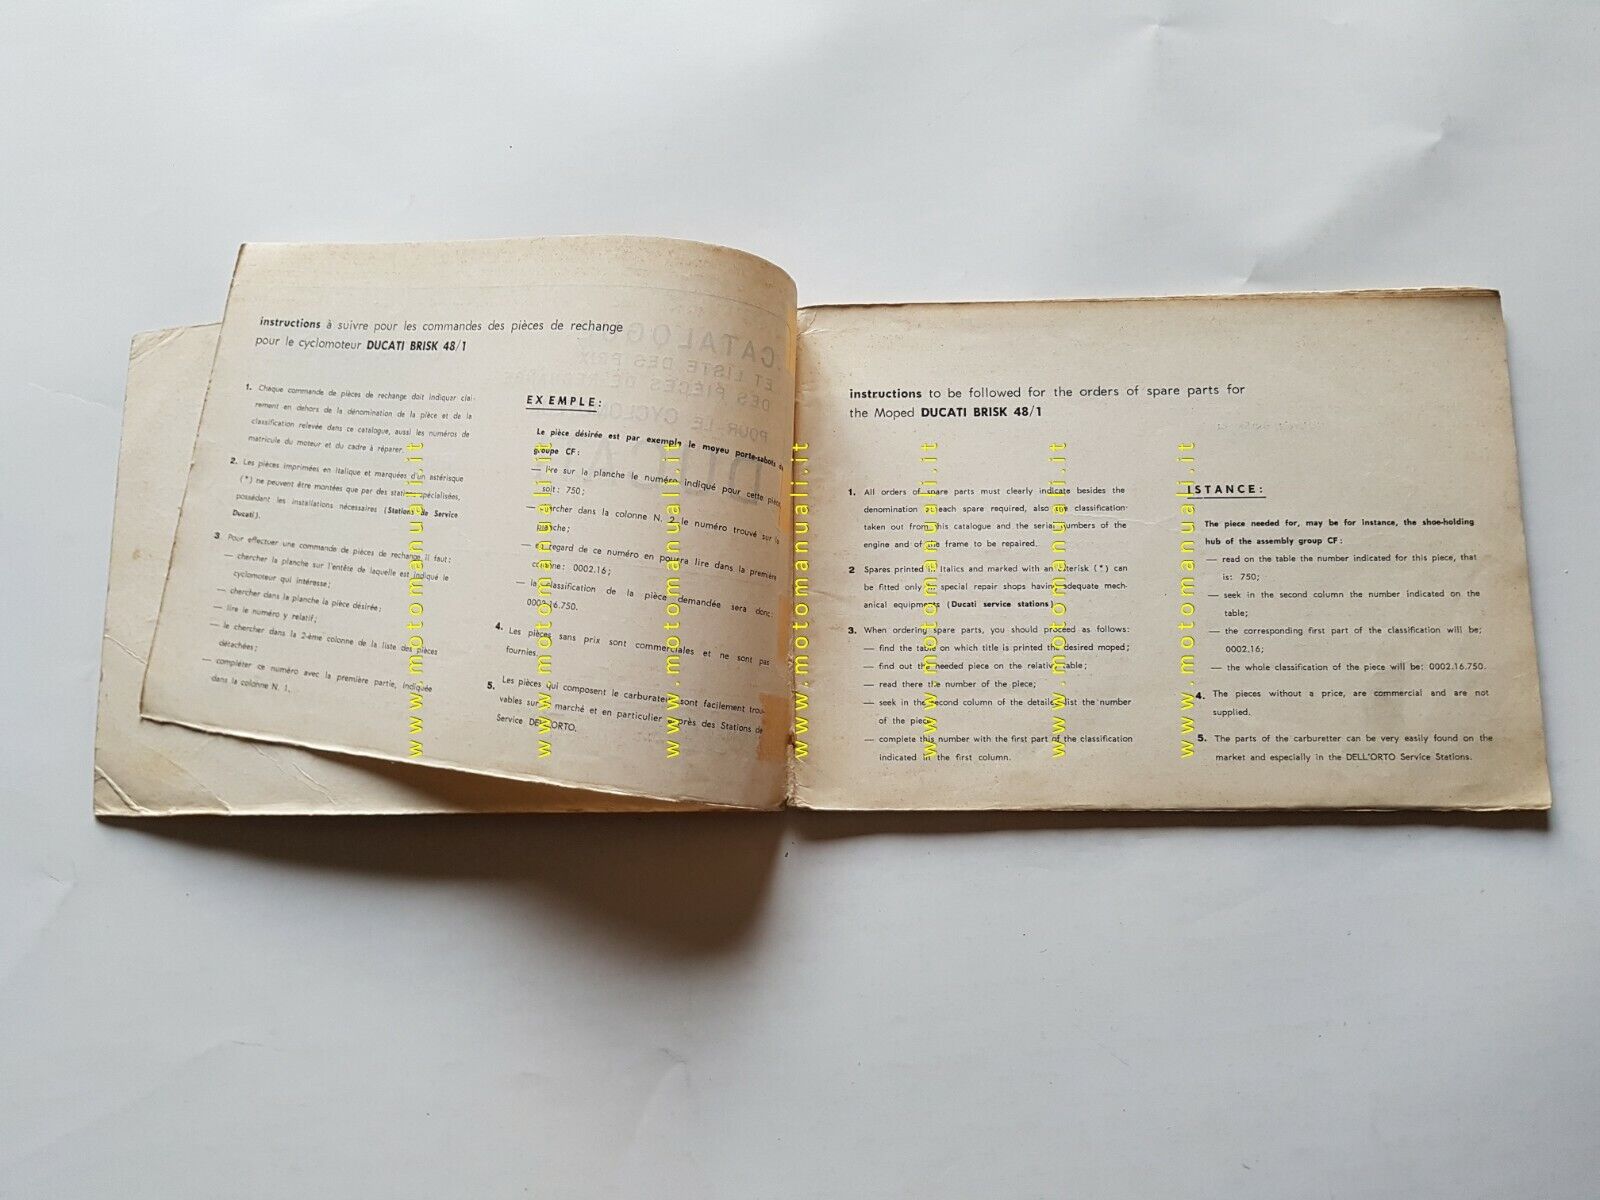 instructions à suivre pour les commandes des pièces de rechange
pour le cyclomoteur DUCATI BRISK 48/1
1. Chaque commande de pièces de rechange doit indiquer clai-
rement en dehors de la dénomination de la pièce et de la
classification relevée dans ce catalogue, aussi les numéros de
matricule du moteur et du cadre à réparer.
2. Les pièces imprimées en Italique et marquées d'un astérisque
(*) ne peuvent être montées que par des stations spécialisées,
possédant les installations nécessaires (Stations de Service
Ducati).
3 Pour effectuer une commande de pièces de rechange il faut:
— chercher la planche sur l'entête de laquelle est indiqué le
cyclomoteur qui intéresse;
— chercher dans la planche la pièce désirée;
— lire le numéro y relatif;
— le chercher dans la 2-ème colonne de la liste des pièces
détachées;
— compléter ce numéro avec la première partie, indiquée
dans la colonne N. 1.
EXEMPLE:
Le pièce désirée est par exemple le moyeu porte-sabots du
groupe CF:
— lire sur la planche le numéro indiqué pour cette pièce,
soit: 750;
— chercher dans la colonne N. 2 le numéro trouvé sur la
planche;
— en regard de ce numéro en pourra lire dans la première
colonne: 0002.16;
— la classification de la pièce demandée sera donc:
0002.16.750.
4. Les pièces sans prix sont commerciales et ne sont pas
fournies.
5. Les pièces qui composent le carburateur sont facilement trou-
vables sur le marché et en particulier après des Stations de
Service DELL'ORTO.
CATALOGUE
ET LISTE DES PRIX
DES PIÈCES DE
POUR LE CYCLOM
DUCA
instructions to be followed for the orders of spare parts for
the Moped DUCATI BRISK 48/1
1. All orders of spare parts must clearly indicate besides the
denomination of each spare required, also the classification
taken out from this catalogue and the serial numbers of the
engine and of the frame to be repaired.
2 Spares printed in Italics and marked with an asterisk (*) can
be fitted only by special repair shops having adequate mech-
anical equipments (Ducati service stations)
3. When ordering spare parts, you should proceed as follows:
— find the table on which title is printed the desired moped;
— find out the needed piece on the relative table;
— read there the number of the piece;
— seek in the second column of the detailed list the number
of the piece;
— complete this number with the first part of the classification
indicated in the first column.
ISTANCE:
The piece needed for, may be for instance, the shoe-holding
hub of the assembly group CF:
— read on the table the number indicated for this piece, that
is: 750;
— seek in the second column the number indicated on the
table;
— the corresponding first part of the classification will be:
0002.16;
— the whole classification of the piece will be: 0002.16.750.
4. The pieces without a price, are commercial and are not
supplied.
5. The parts of the carburetter can be very easily found on the
market and especially in the DELL'ORTO Service Stations.
www.motomanuali.it
www.motomanuali.it
www.motomanuali.it
www.motomanuali.it
www.motomanuali.it
www.motomanuali.it
www.motomanuali.it